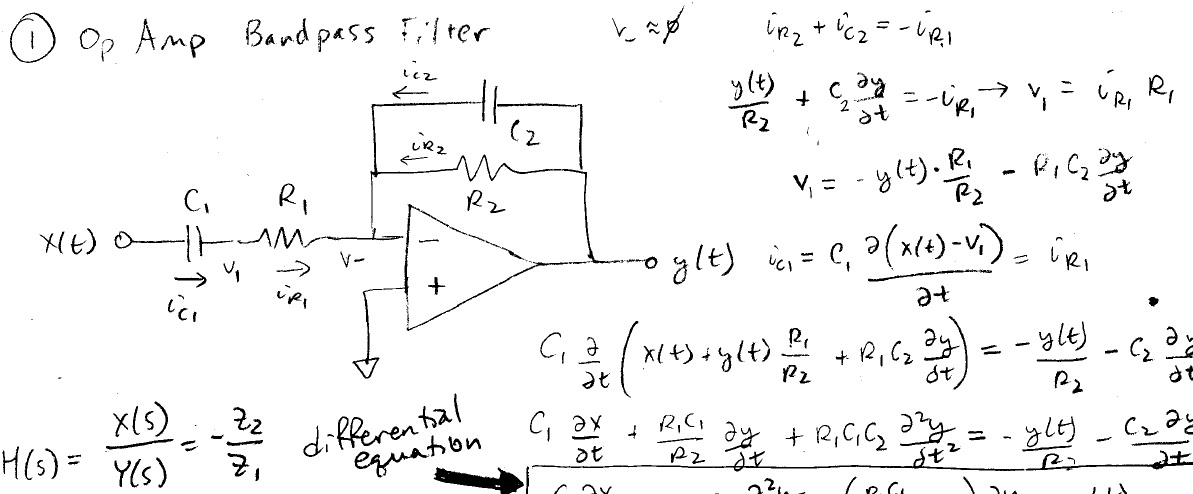 ① Op Amp Bandpass Filter
V_ ≈ ∅
i_R2 + i_C2 = -i_R1
y(t)/R2 + C2 ∂y/∂t = -i_R1 → v1 = i_R1 R1
v1 = - y(t)·R1/R2 - R1C2 ∂y/∂t
i_C2
C2
i_R2
R2
C1 R1
x(t)
i_C1 v1 i_R1 v-
- +
y(t)
i_C1 = C1 ∂(x(t)-v1)/∂t = i_R1
C1 ∂/∂t (x(t)+y(t) R1/R2 + R1C2 ∂y/∂t) = - y(t)/R2 - C2 ∂y/∂t
H(s) = X(s)/Y(s) = - Z2/Z1
differential
equation
C1 ∂x/∂t + R1C1/R2 ∂y/∂t + R1C1C2 ∂²y/∂t² = - y(t)/R2 - C2 ∂y/∂t